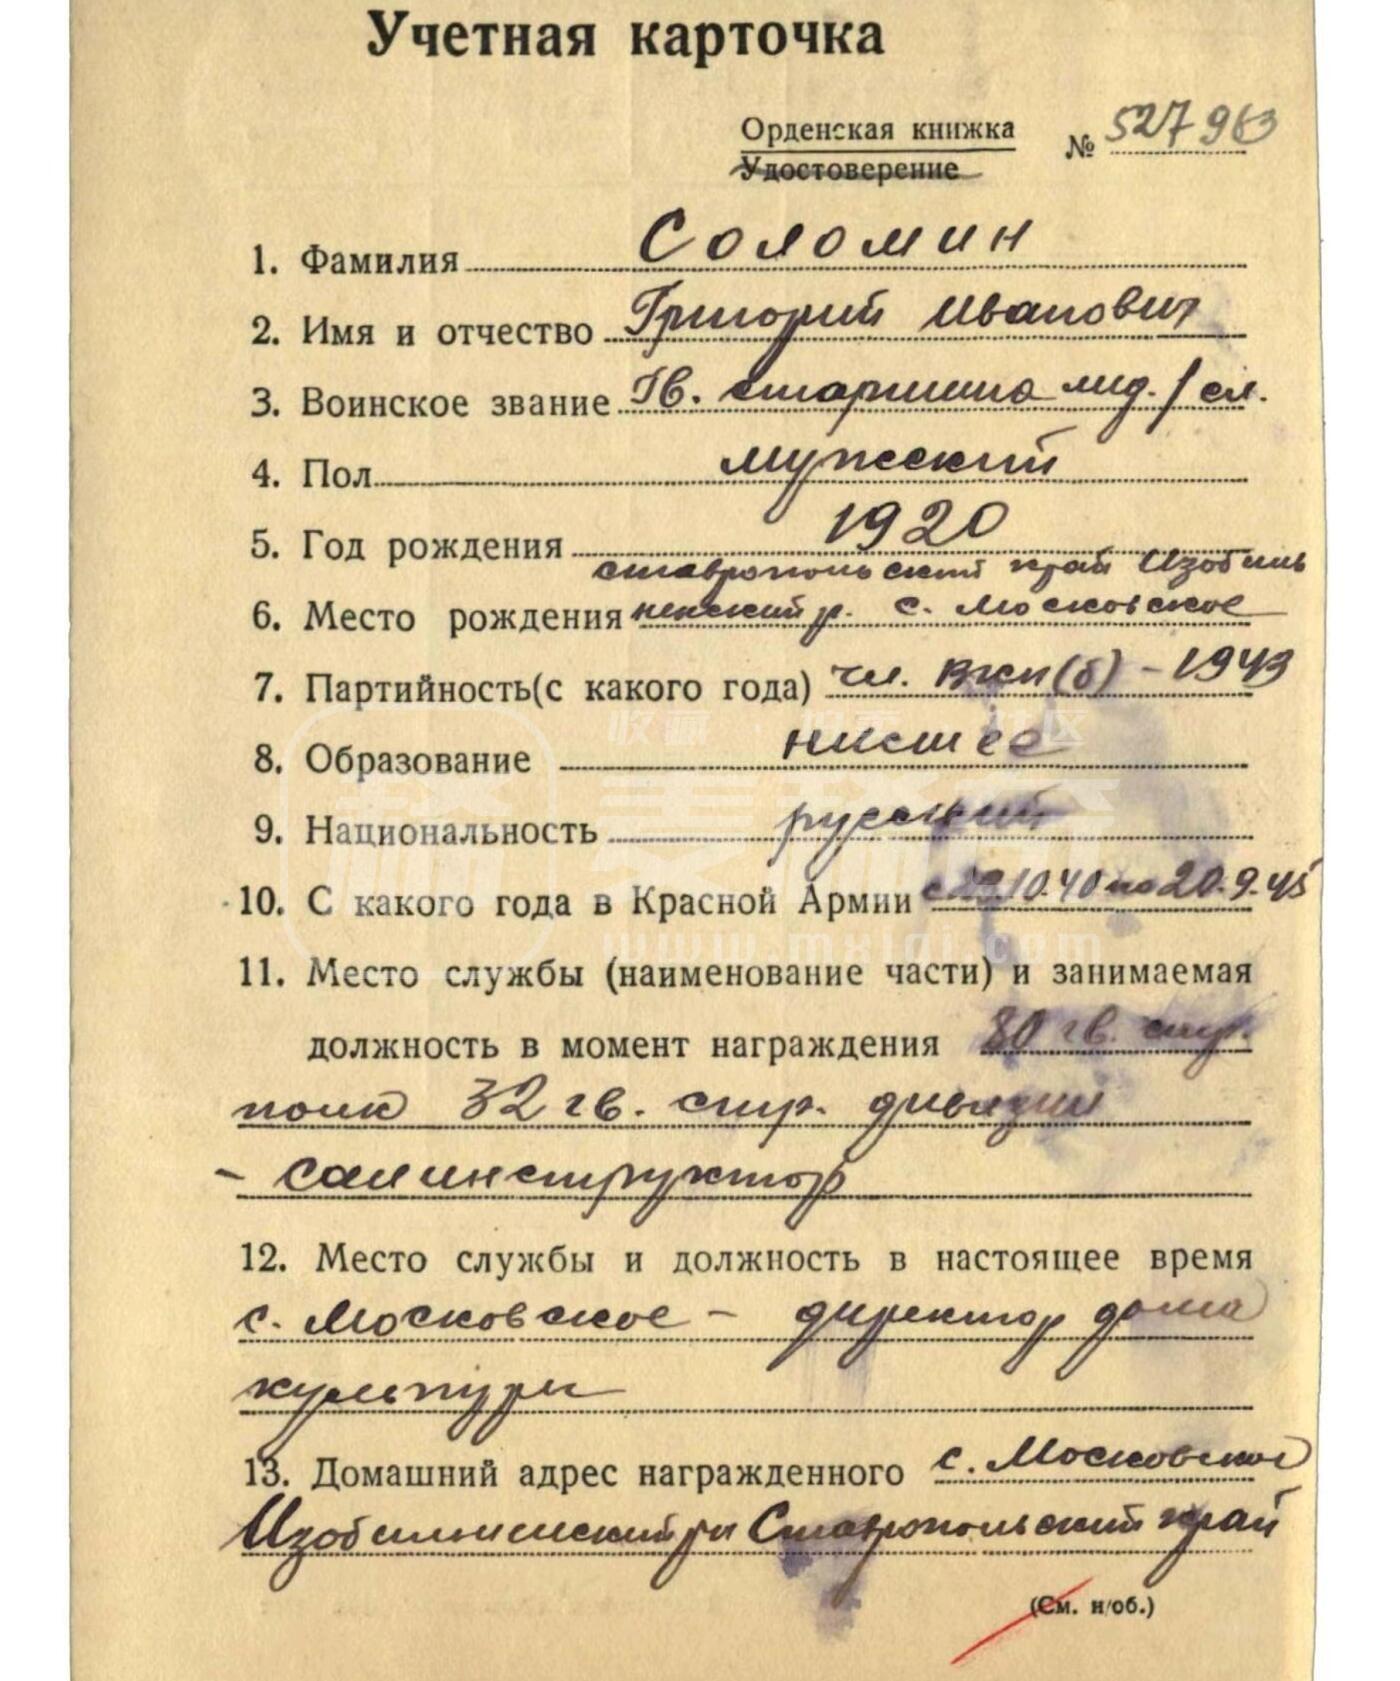 Учетная карточка
Орденская книжка
Удостоверение
№ 527963
1. Фамилия Соломин
2. Имя и отчество Григорий Иванович
3. Воинское звание Гв. старшина мед. / сл.
4. Пол мужской
5. Год рождения 1920
ставропольский край Изобиль
6. Место рождения ненский р. с. Московское
7. Партийность(с какого года) чл. ВКП(б) – 1943
收藏 · 社区
8. Образование низшее
9. Национальность русский
10. С какого года в Красной Армии с 10.40 по 20.9.45
www.mxlqi.com
11. Место службы (наименование части) и занимаемая
должность в момент награждения 80 гв. стр.
полк 32 гв. стр. дивизии
– санинструктор
12. Место службы и должность в настоящее время
с. Московское – директор дома
культуры
13. Домашний адрес награжденного с. Московское
Изобильненский р-н Ставропольский край
(См. н/об.)